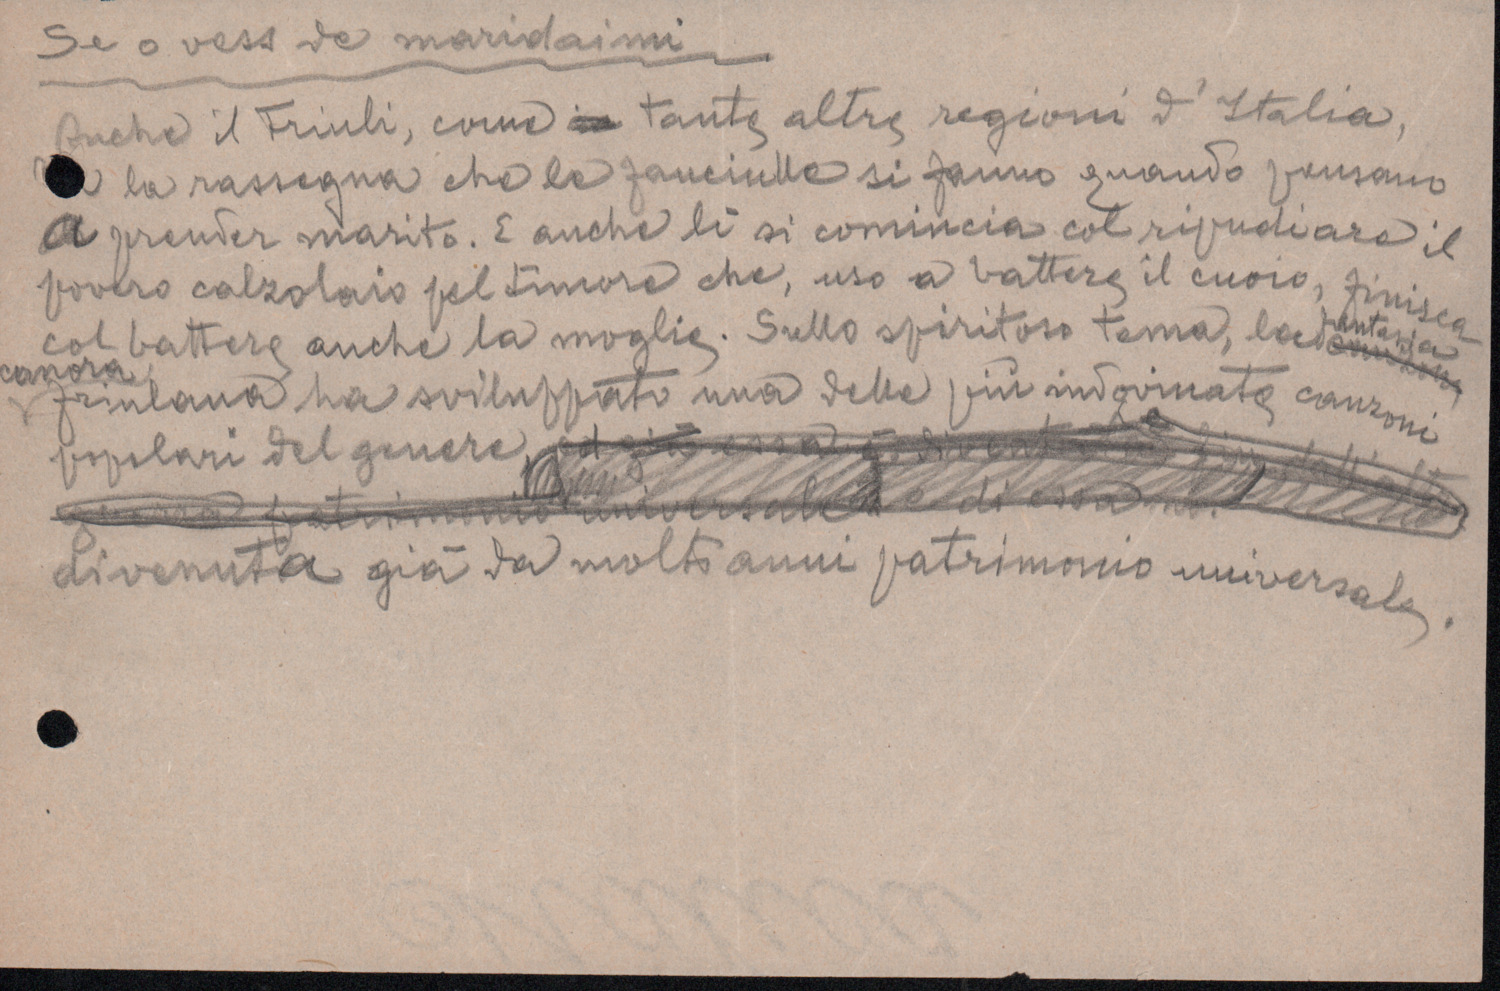 Se o vess de maridaimi
Anche il Friuli, come tante altre regioni d'Italia,
ha la rassegna che le fanciulle si fanno quando pensano
a prender marito. E anche lì si comincia col ripudiare il
povero calzolaio pel timore che, uso a battere il cuoio, finisca
col battere anche la moglie. Sullo spiritoso tema, la fantasia
canora
friulana ha sviluppato una delle più indovinate canzoni
popolari del genere, ed già essa è
patrimonio universale e di essa
divenuta già da molto anni patrimonio universale.